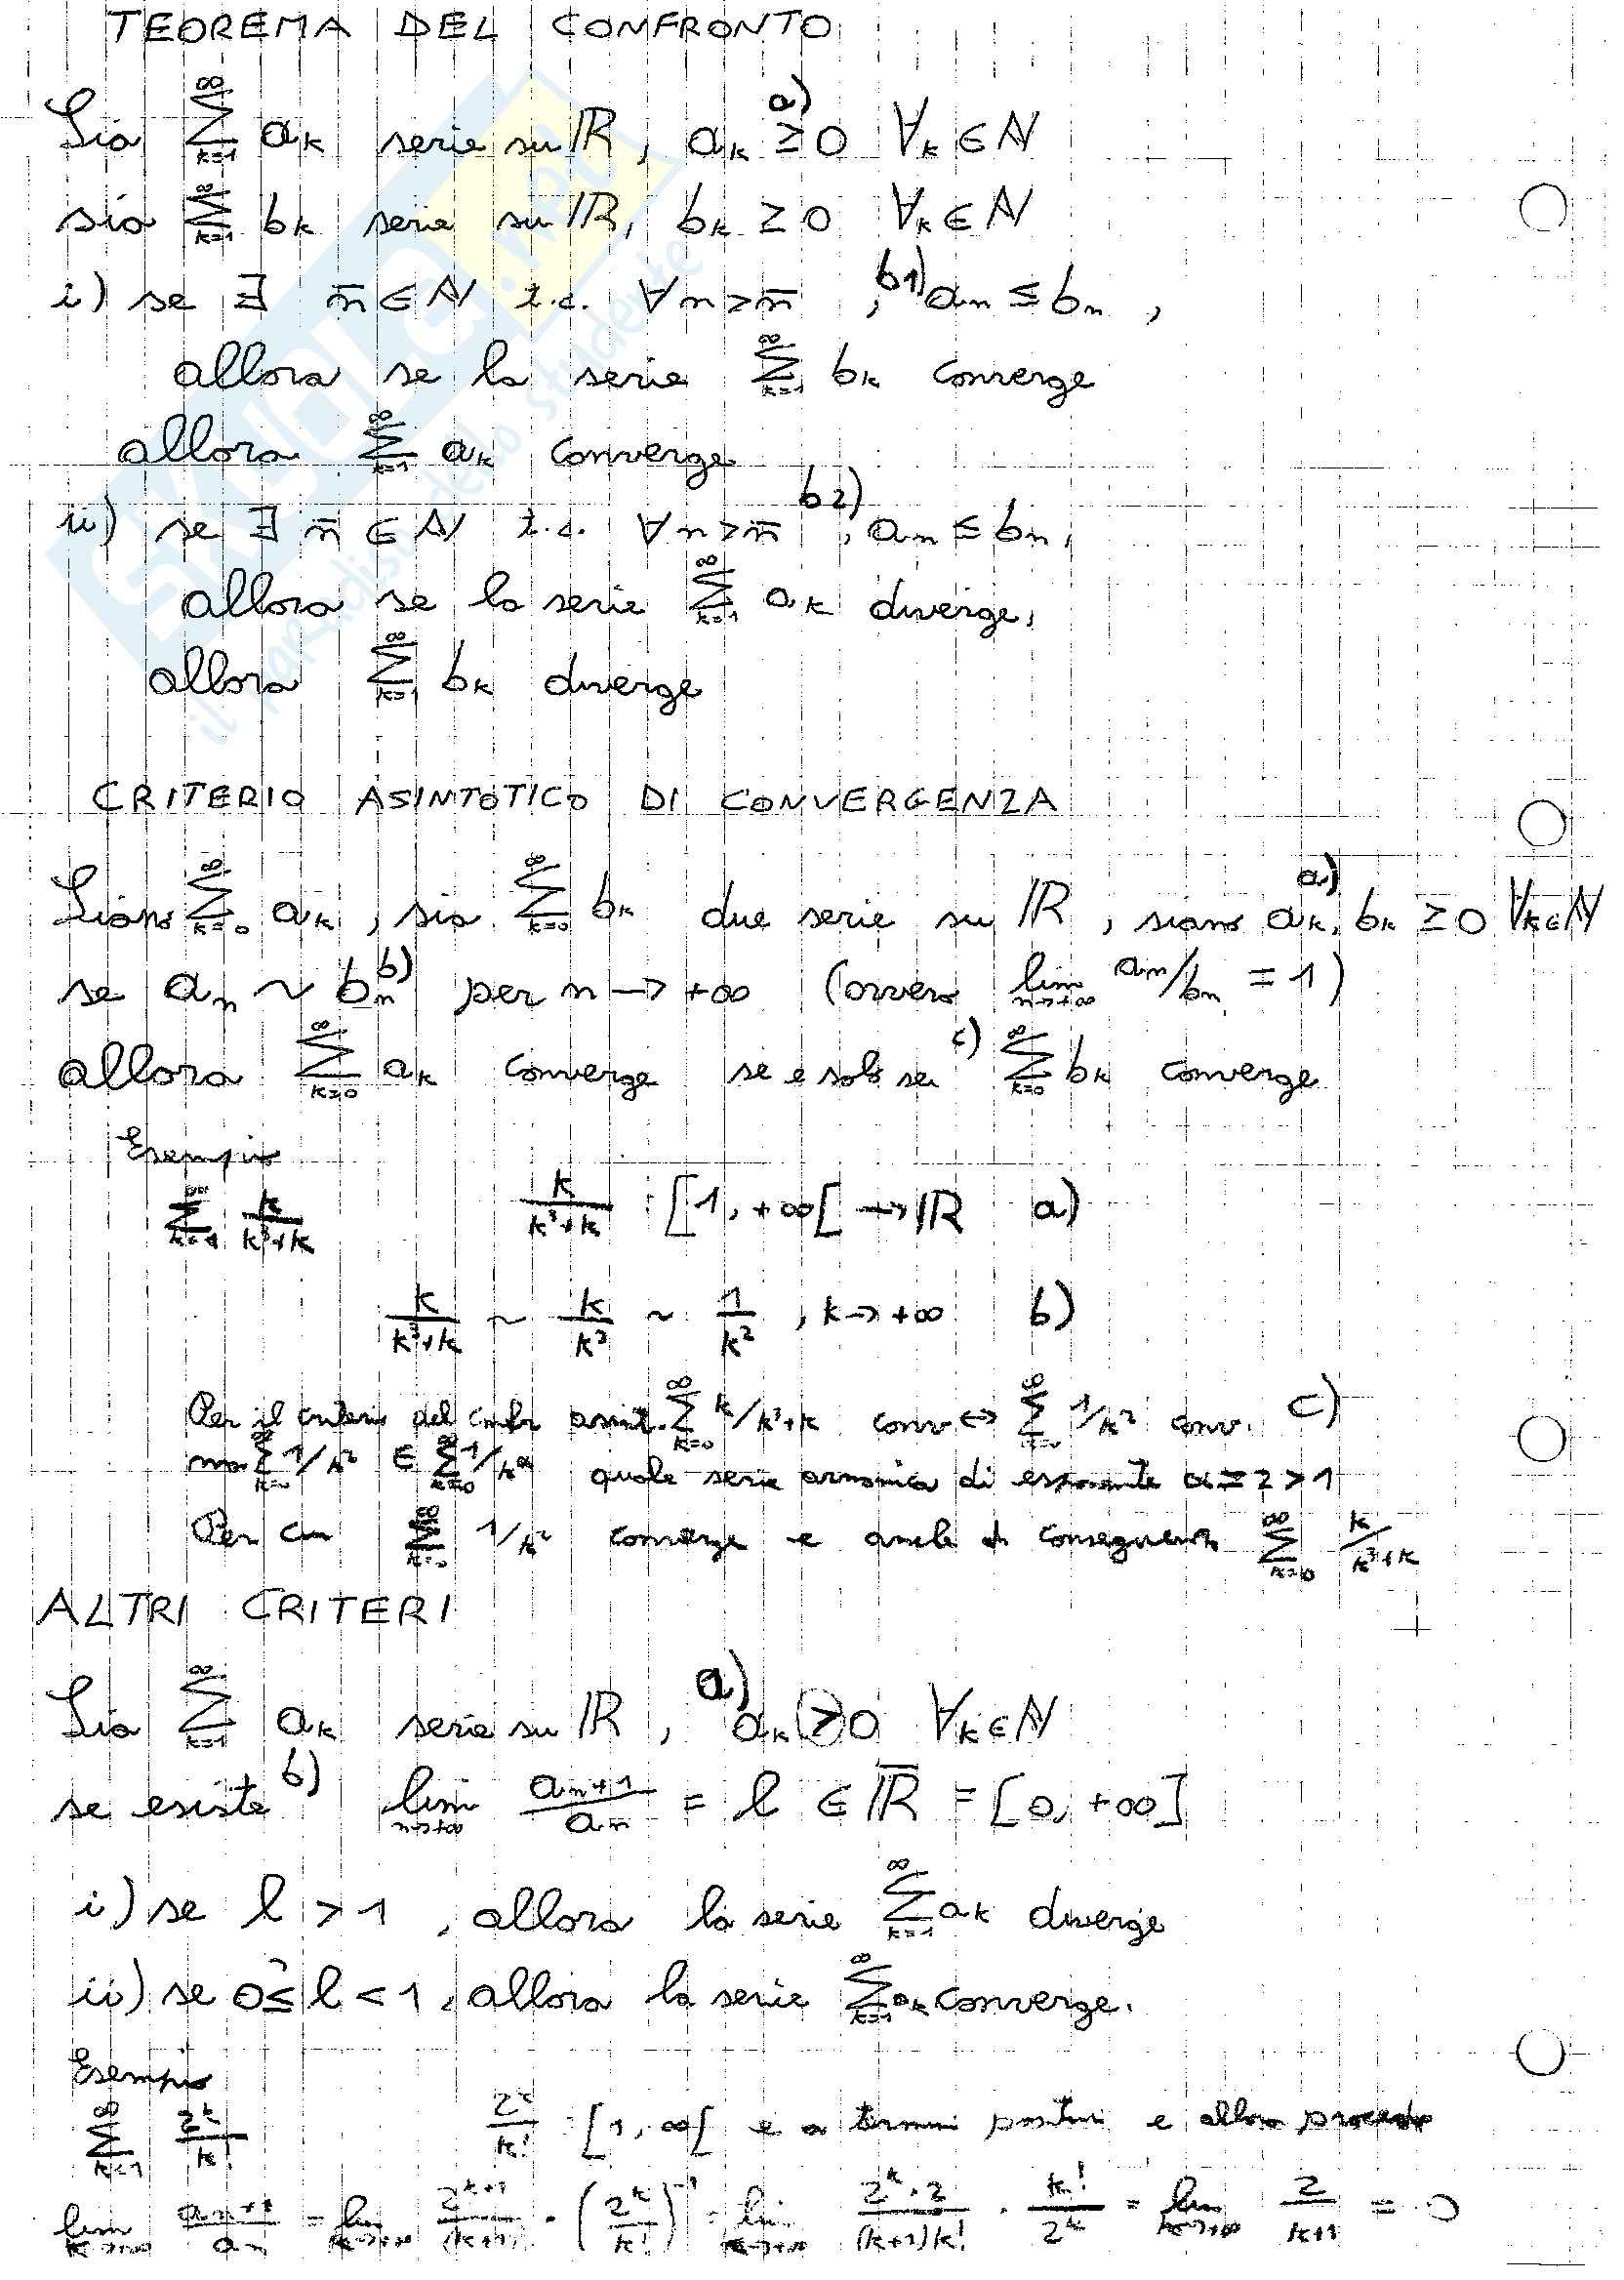 TEOREMA DEL CONFRONTO
Sia ∑_{k=1}^{∞} a_k serie su ℝ, a_k ≥ 0 ∀k ∈ ℕ a)
sia ∑_{k=1}^{∞} b_k serie su ℝ, b_k ≥ 0 ∀k ∈ ℕ
i) se ∃ n̄ ∈ ℕ t.c. ∀n > n̄, b1) a_n ≤ b_n,
allora se la serie ∑_{k=1}^{∞} b_k converge
allora ∑_{k=1}^{∞} a_k converge
ii) se ∃ n̄ ∈ ℕ t.c. ∀n > n̄ b2), a_n ≤ b_n,
allora se la serie ∑_{k=1}^{∞} a_k diverge,
allora ∑_{k=1}^{∞} b_k diverge
CRITERIO ASINTOTICO DI CONVERGENZA
Siano ∑_{k=0}^{∞} a_k, sia ∑_{k=0}^{∞} b_k due serie su ℝ, siano a) a_k, b_k ≥ 0 ∀k∈ℕ
se a_n ~ b_n b) per n → +∞ (ovvero lim_{n→+∞} a_n/b_n = 1)
allora ∑_{k=0}^{∞} a_k converge se e solo se c) ∑_{k=0}^{∞} b_k converge
Esempio
∑_{k=1}^{∞} k/(k³+k) k/(k³+k) : [1, +∞[ → ℝ a)
k/(k³+k) ~ k/k³ ~ 1/k², k → +∞ b)
Per il criterio del asint. ∑_{k=0}^{∞} k/k³+k conv ⇔ ∑_{k=0}^{∞} 1/k² conv. c)
ma ∑_{k=0}^{∞} 1/k² ∈ ∑_{k=0}^{∞} 1/k^α quale serie armonica di esponente α = 2 > 1
Per cui ∑_{k=0}^{∞} 1/k² converge e anche di conseguenza ∑_{k=0}^{∞} k/k³+k
ALTRI CRITERI
Sia ∑_{k=1}^{∞} a_k serie su ℝ, a) a_k > 0 ∀k∈ℕ
se esiste b) lim_{n→+∞} a_{n+1}/a_n = l ∈ ℝ̄ = [0, +∞]
i) se l > 1, allora la serie ∑_{k=1}^{∞} a_k diverge
ii) se 0 ≤ l < 1, allora la serie ∑_{k=1}^{∞} a_k converge.
Esempio
∑_{k=1}^{∞} 2^k/k! 2^k/k! : [1, ∞[ e a termini positivi e allora procedo
lim_{k→+∞} a_{n+1}/a_n = lim_{k→+∞} 2^{k+1}/(k+1)! · (2^k/k!)^{-1} = lim_{k→+∞} 2^k·2/(k+1)k! · k!/2^k = lim_{k→+∞} 2/(k+1) = 0